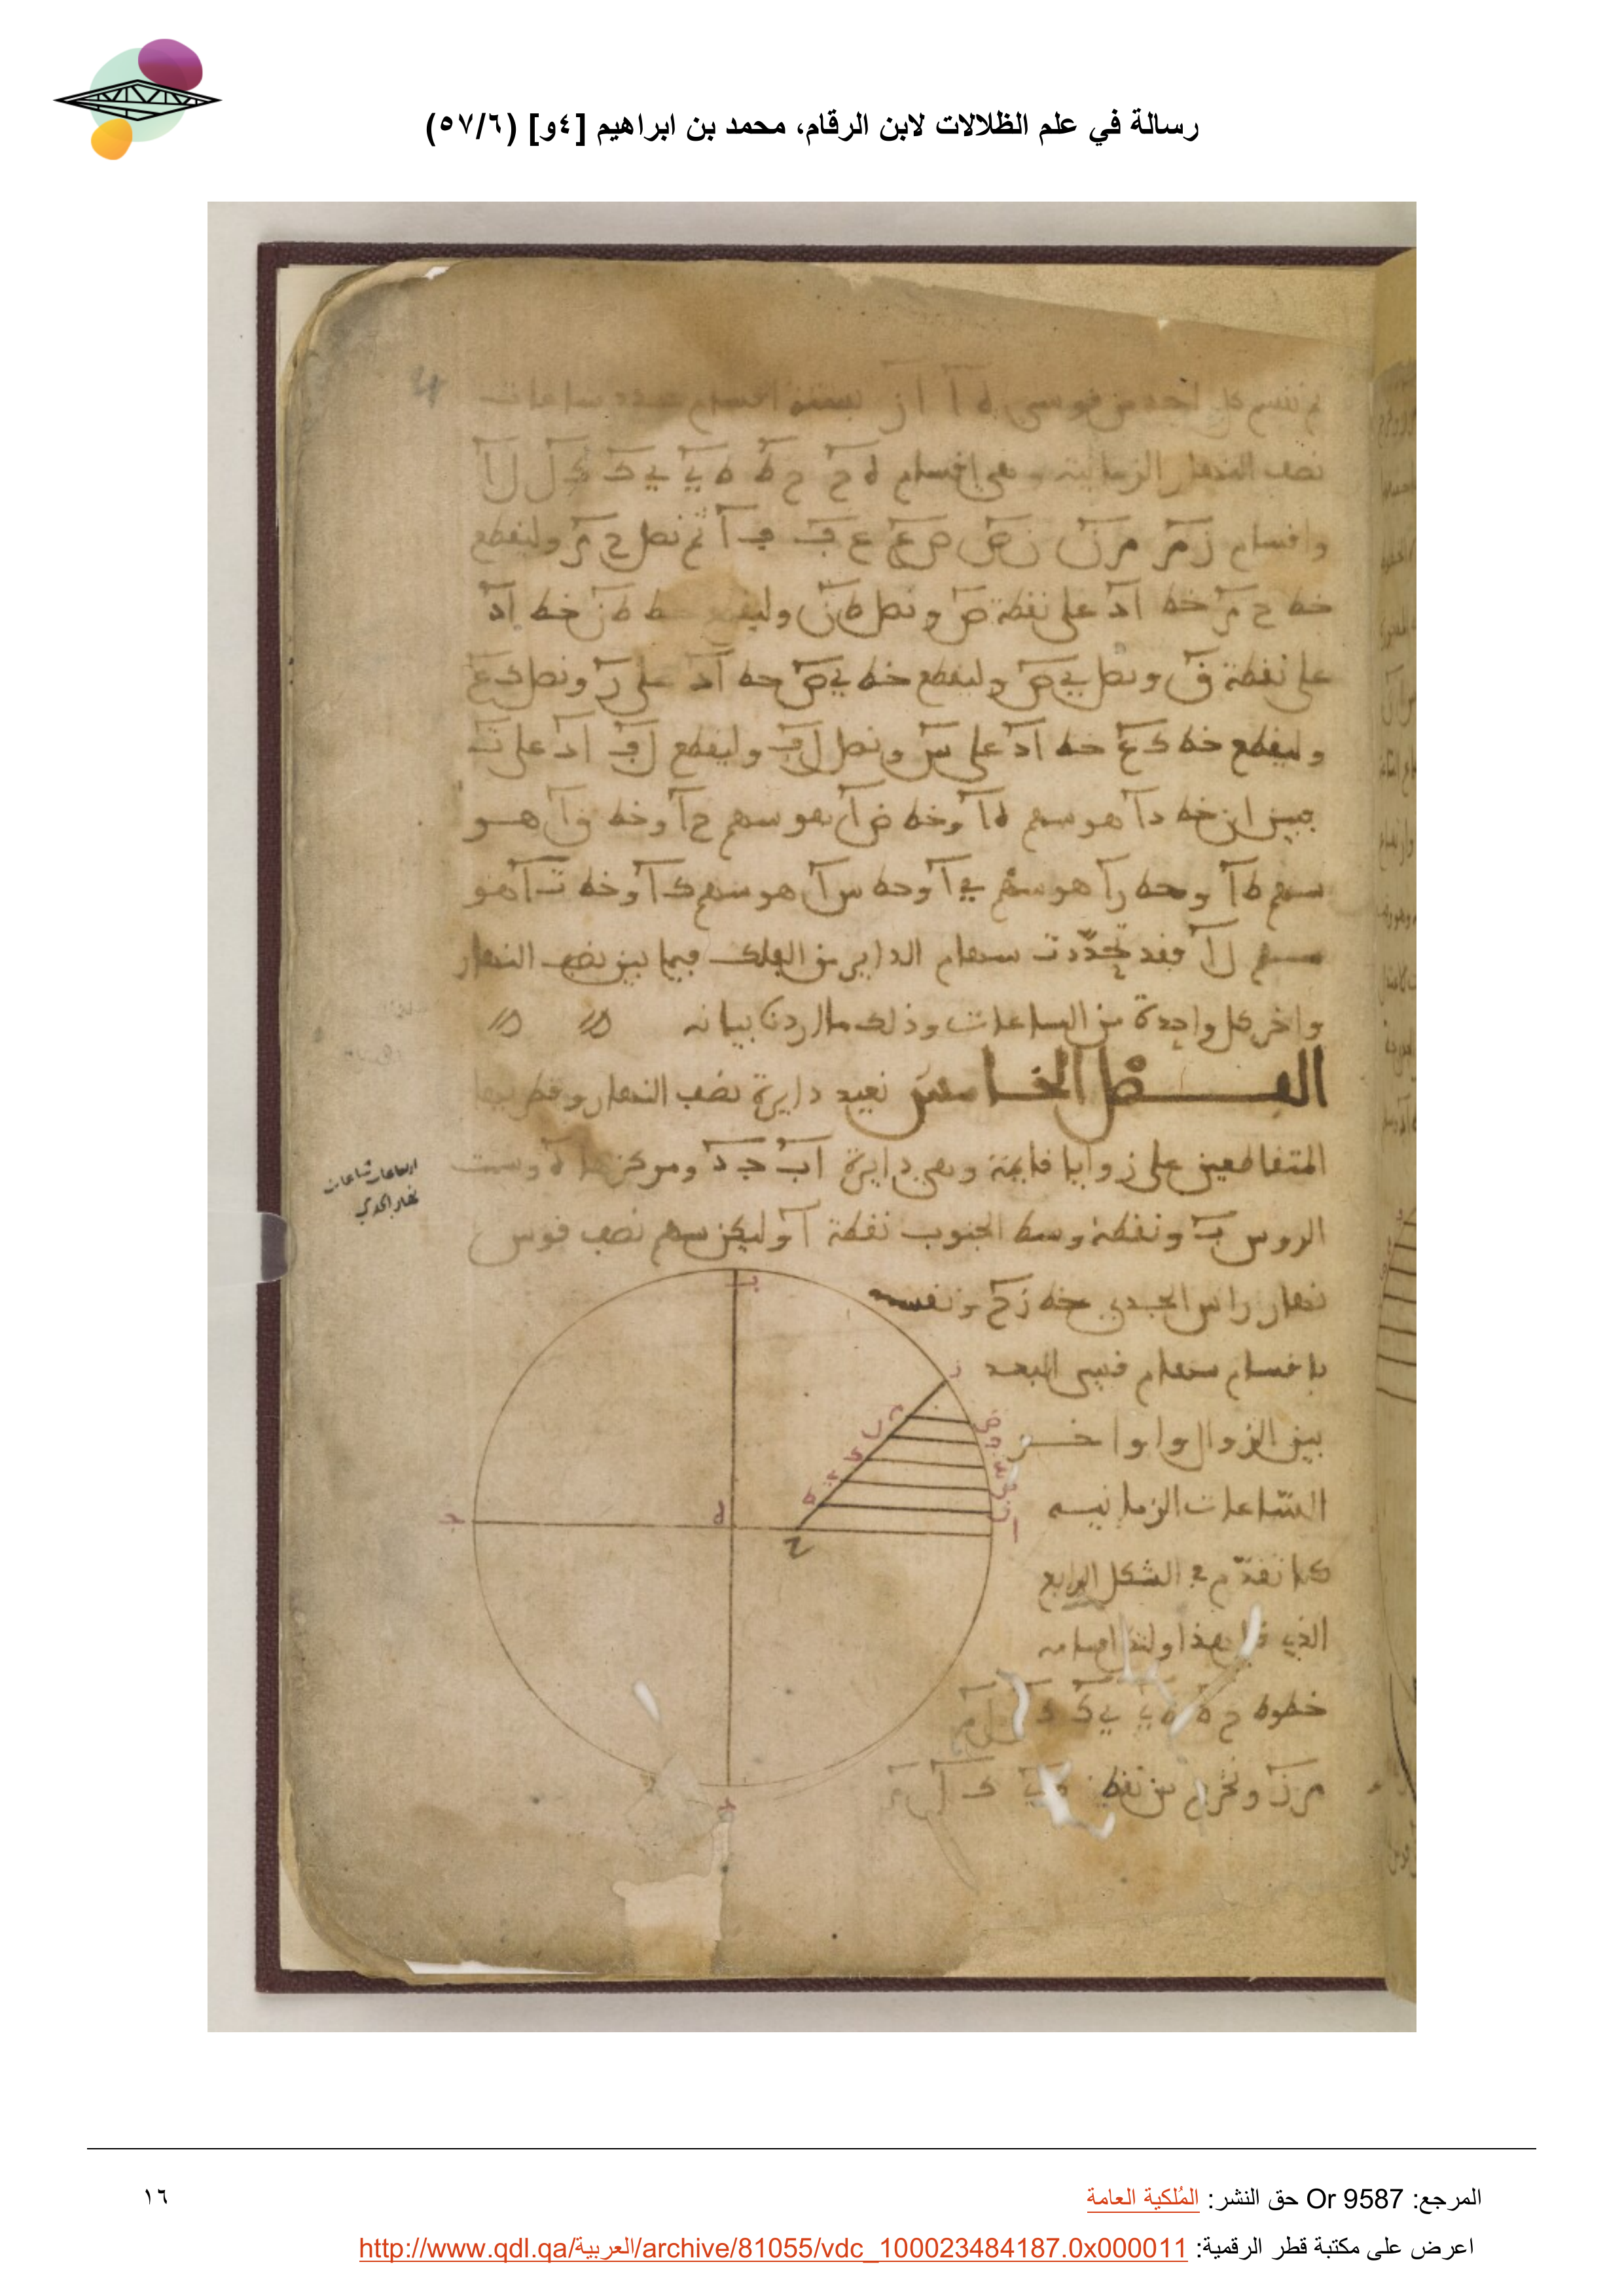 رسالة في علم الظلالات لابن الرقام، محمد بن ابراهيم [٤و] (٥٧/٦)
ثم نقسم كل احد من قوسى ه آ آ ز بستة اقسام عدد ساعات
نصف النهار الزمانية وهي اقسام ه ح ح ط ط ي ي ك ك ل ل آ
واقسام ز م م ن ن ص ص ع ع ف ف آ ثم نصل ح م وليقطع
خط ح م خط اد على نقطة ض ونصل ط ن وليقطع خط ط ن خط اد
على نقطة ق ونصل ي ص وليقطع خط ي ص خط اد على ر ونصل ك ع
وليقطع خط ك ع خط اد على س ونصل ل ف وليقطع ل ف اد على ت
فبين ان خط دآ هو سهم ه آ وخط ض آ هو سهم ح آ وخط ق آ هو
سهم ط آ وخط ر آ هو سهم ي آ وخط س آ هو سهم ك آ وخط ت آ هو
سهم ل آ فقد تحددت سهام الداير من الفلك فيما بين نصف النهار
واخر كل واحدة من الساعات وذلك ما اردنا بيانه
الشكل الخامس نعيد دايرة نصف النهار وقطريها
المتقاطعين على زوايا قايمة وهي دايرة اب ج د ومركزها ه وسمت
الروس ب ونقطة وسط الجنوب نقطة آ وليكن سهم نصف قوس
نهار راس الجدي خط ز ح ونقسمه
باقسام سهام قسى البعد
بين الزوال واواخر
الساعات الزمانيه
كما تقدم في الشكل الرابع
الذي قبل هذا ولتكن اقسامه
خطوط ح ط ط ي ي ك ك ل ل م
م ز ونخرج من نقط ط ي ك ل م
ارتفاعات ساعات
نهار الجدي
ب
ز
م
ل
ك
ي
ط
ح
ا
ه
ج
د
المرجع: Or 9587 حق النشر: المُلكية العامة
١٦
اعرض على مكتبة قطر الرقمية: http://www.qdl.qa/العربية/archive/81055/vdc_100023484187.0x000011